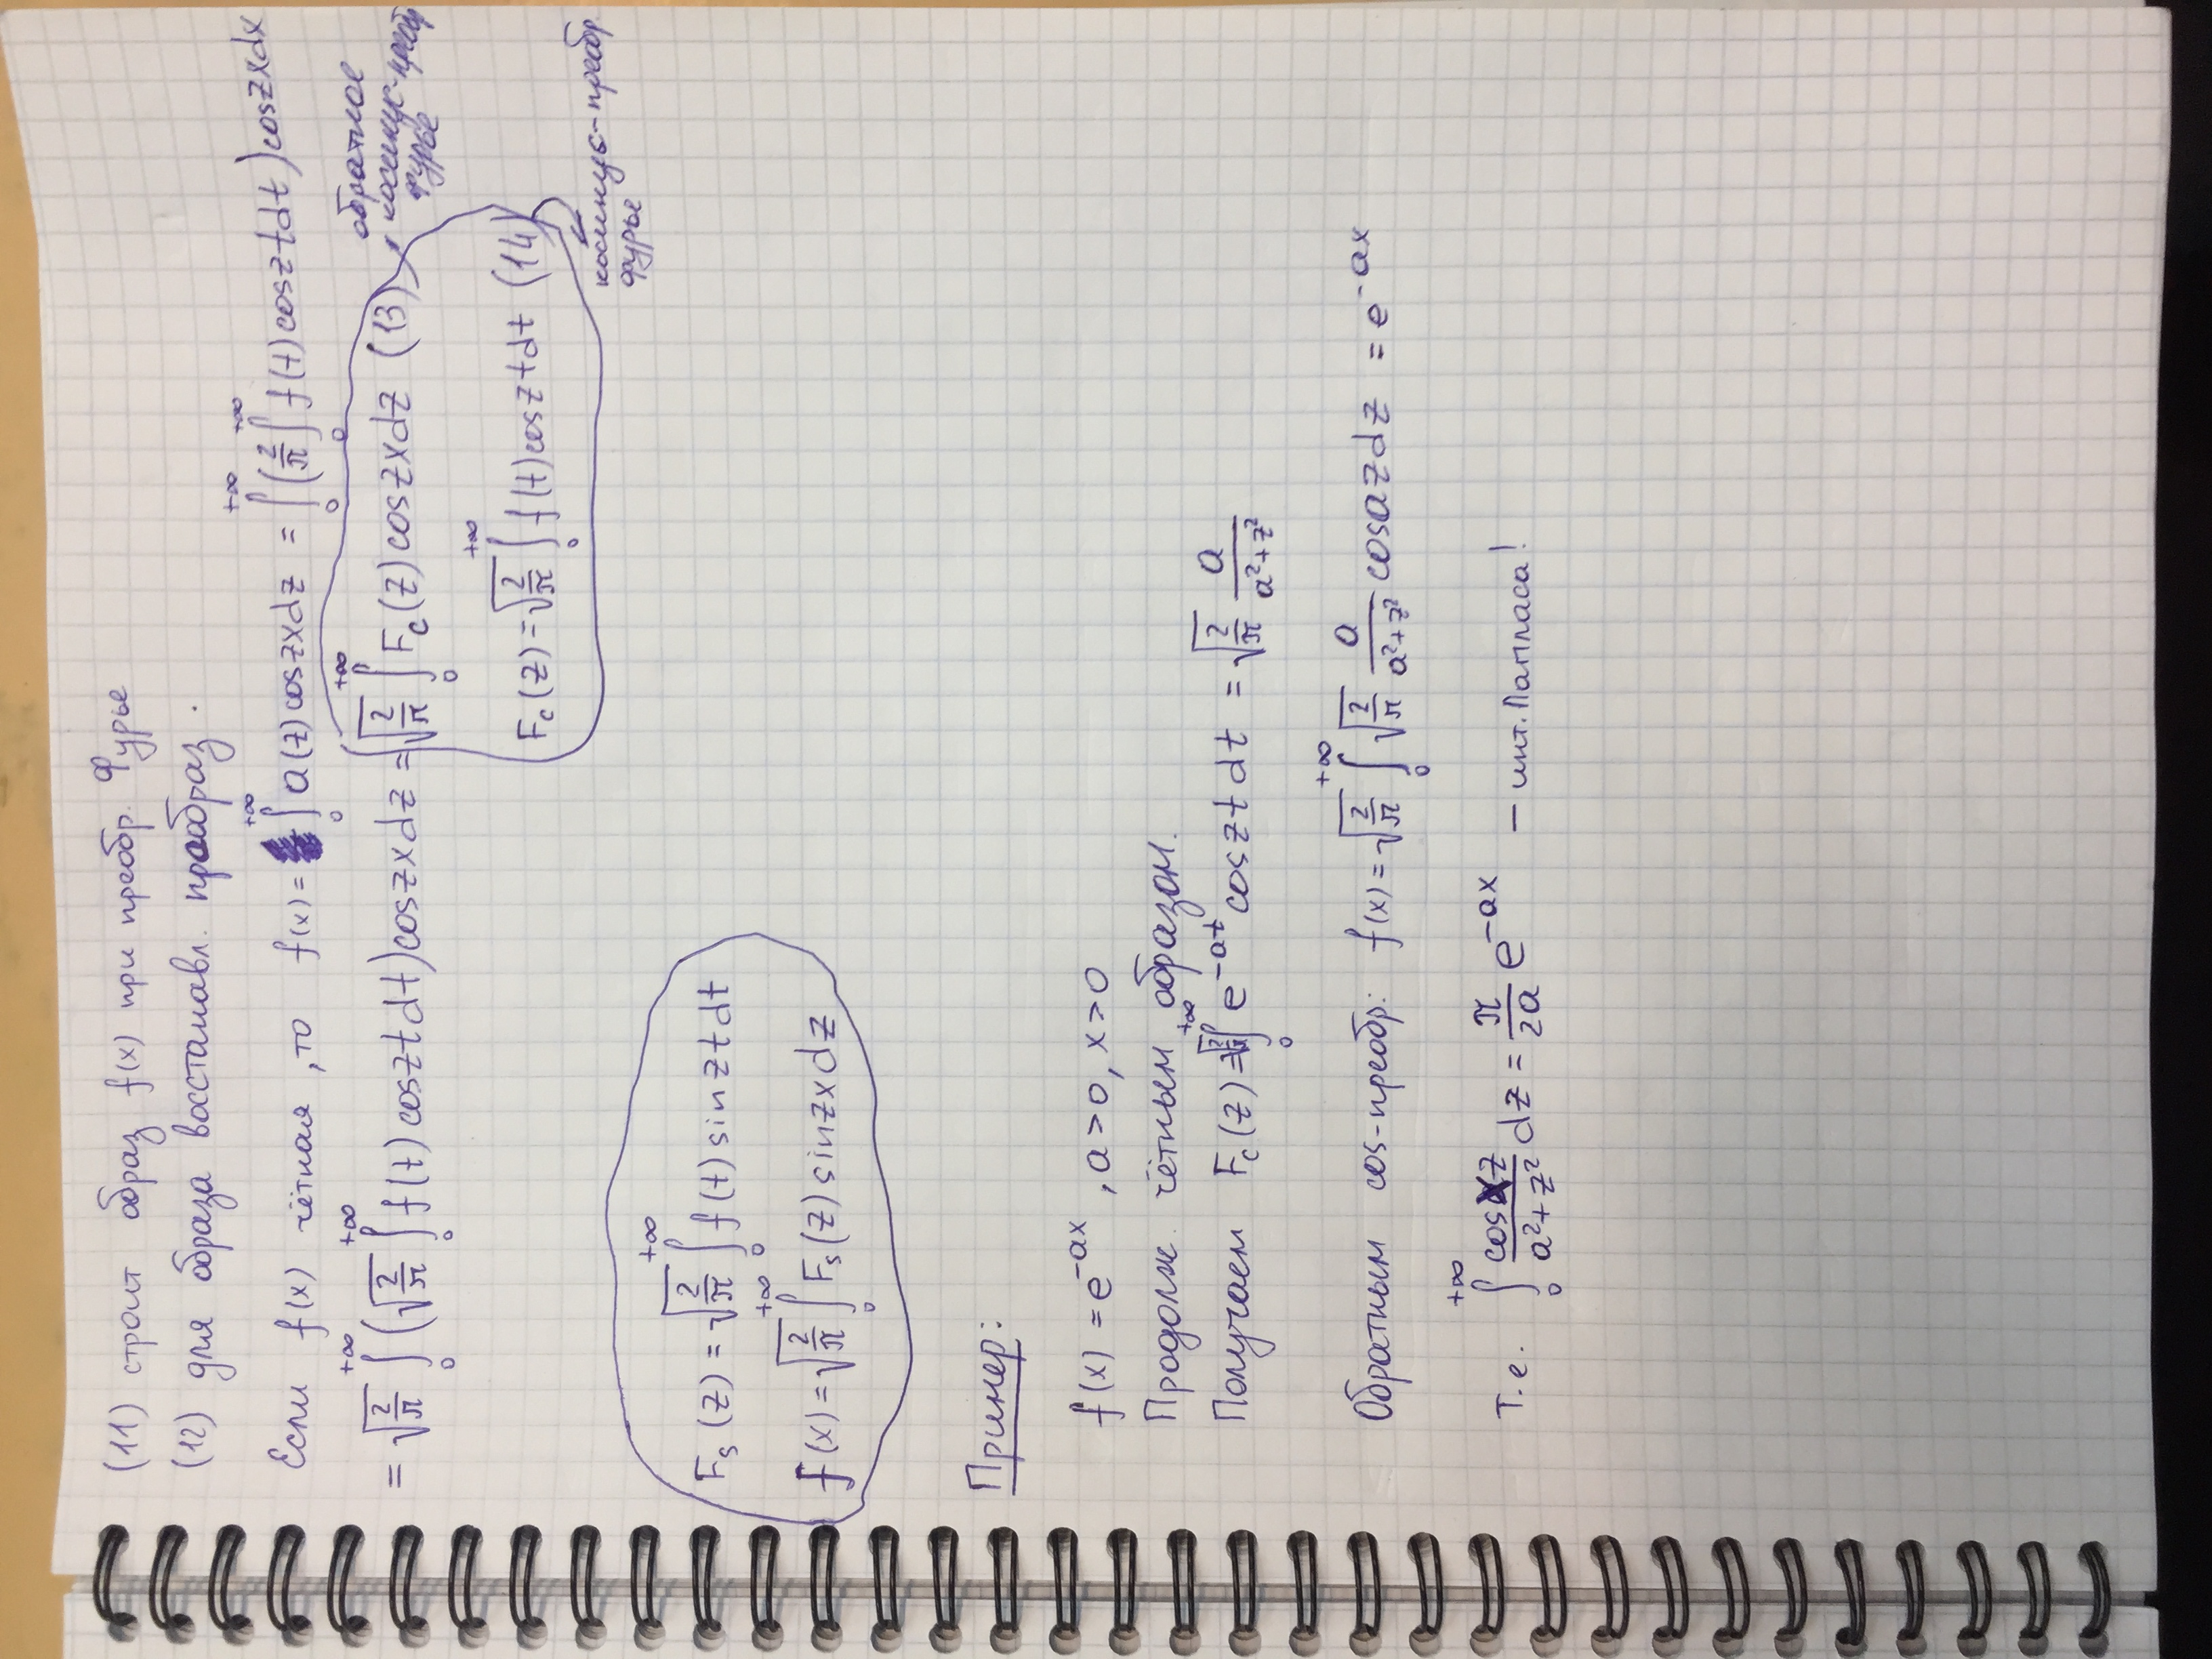 (11) строит образ f(x) при преобр. Фурье
(12) для образа восстанавл. прообраз.
Если f(x) чётная, то f(x) = ∫₀^{+∞} a(z) cos zx dz = ∫₀^{+∞} (2/π ∫₀^{+∞} f(t) cos zt dt) cos zx dx
= √(2/π) ∫₀^{+∞} (√(2/π) ∫₀^{+∞} f(t) cos zt dt) cos zx dz = √(2/π) ∫₀^{+∞} F_c(z) cos zx dz (13)
обратное
косинус-преобр
Фурье
F_c(z) = √(2/π) ∫₀^{+∞} f(t) cos zt dt (14)
косинус-преобр.
Фурье
F_s(z) = √(2/π) ∫₀^{+∞} f(t) sin zt dt
f(x) = √(2/π) ∫₀^{+∞} F_s(z) sin zx dz
Пример:
f(x) = e^{-ax}, a>0, x>0
Продолж. чётным образом.
Получаем F_c(z) = √(2/π) ∫₀^{+∞} e^{-at} cos zt dt = √(2/π) a/(a²+z²)
Обратным cos-преобр: f(x) = √(2/π) ∫₀^{+∞} √(2/π) a/(a²+z²) cos az dz = e^{-ax}
Т.е. ∫₀^{+∞} cos xz/(a²+z²) dz = π/(2a) e^{-ax} – инт. Лапласа!